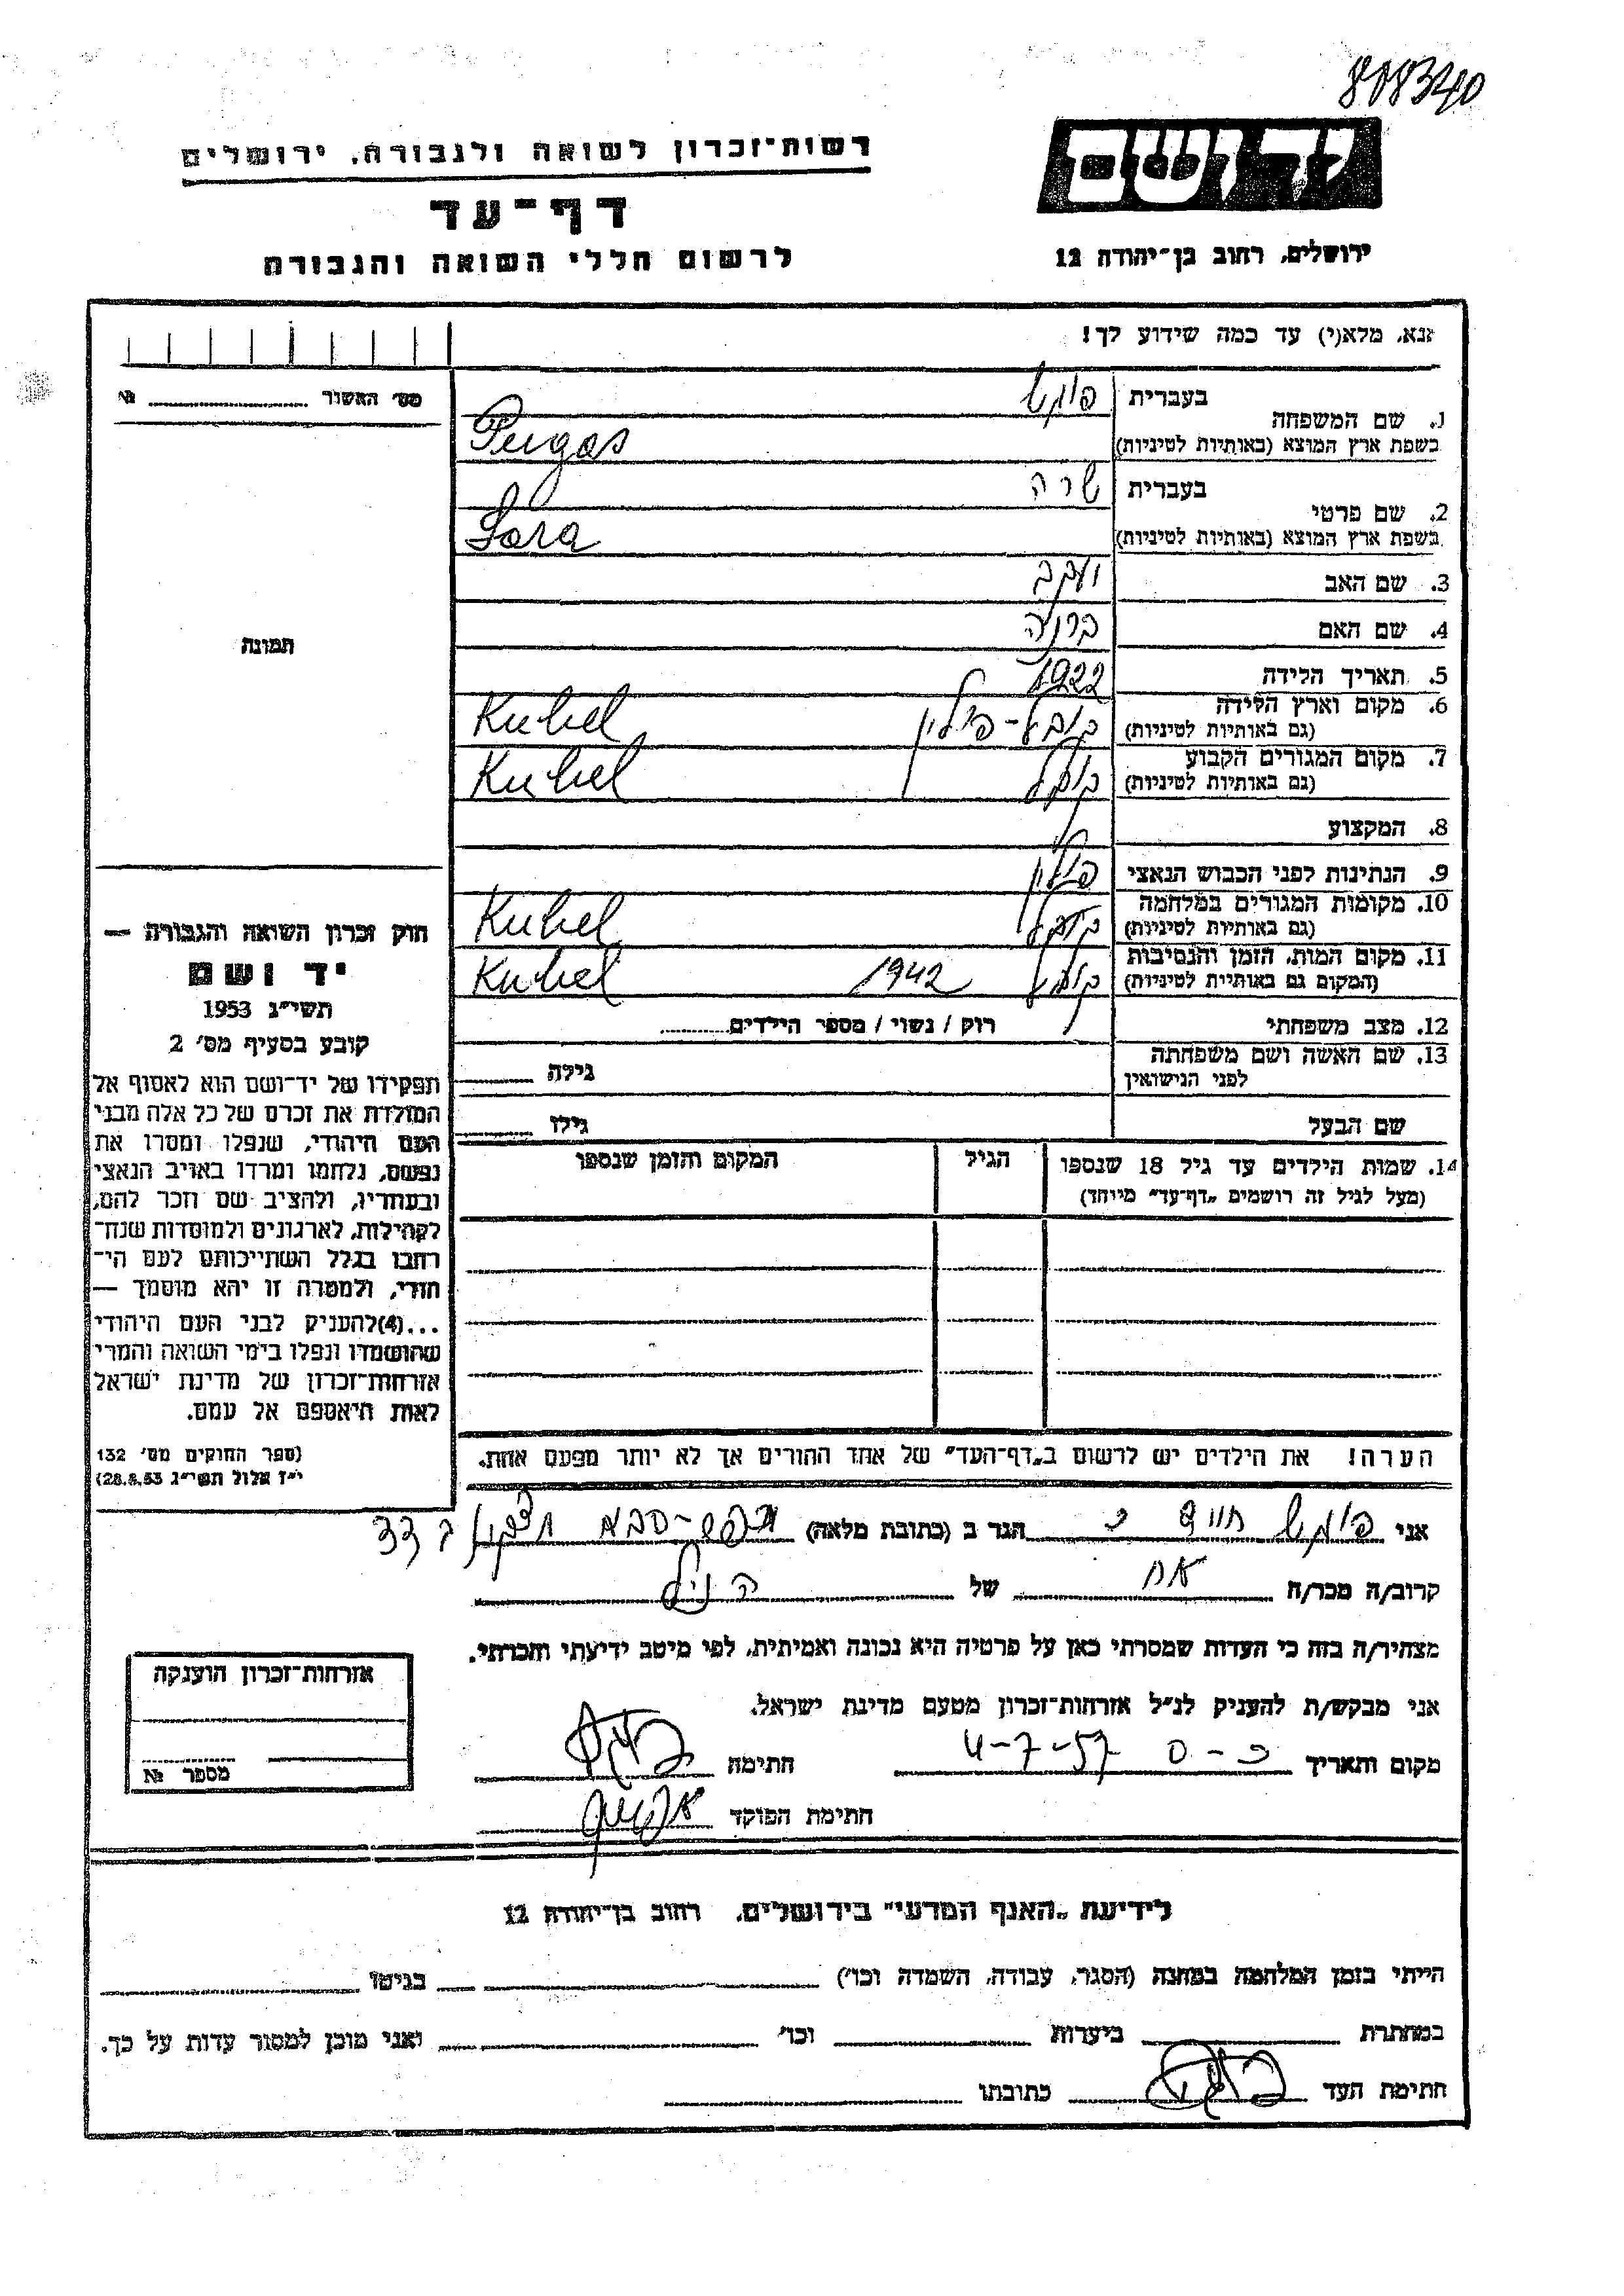 808340
יד ושם
רשות־זכרון לשואה ולגבורה, ירושלים
דף־עד
לרשום חללי השואה והגבורה
ירושלים, רחוב בן־יהודה 12
אנא, מלא(י) עד כמה שידוע לך!
מס' האשור № 
1. שם המשפחה
בעברית
בשפת ארץ המוצא (באותיות לטיניות) Pugas
2. שם פרטי
בעברית שרה
בשפת ארץ המוצא (באותיות לטיניות) Sara
3. שם האב יעקב
4. שם האם
5. תאריך הלידה 1922
6. מקום וארץ הלידה
(גם באותיות לטיניות) קובל - פולין Kubel
7. מקום המגורים הקבוע
(גם באותיות לטיניות) קובל Kubel
8. המקצוע
9. הנתינות לפני הכבוש הנאצי פולין
10. מקומות המגורים במלחמה
(גם באותיות לטיניות) קובל Kubel
11. מקום המות, הזמן והנסיבות
(המקום גם באותיית לטיניות) קובל 1942 Kubel
12. מצב משפחתי רוק / נשוי / מספר הילדים
13. שם האשה ושם משפחתה
לפני הנישואין גילה
שם הבעל גילו
14. שמות הילדים עד גיל 18 שנספו
(מעל לגיל זה רושמים „דף־עד" מייוחד)
הגיל
המקום והזמן שנספו
תמונה
חוק זכרון השואה והגבורה —
יד ושם
תשי״ג 1953
קובע בסעיף מס' 2
תפקידו של יד־ושם הוא לאסוף אל
המולדת את זכרם של כל אלה מבני
העם היהודי, שנפלו ומסרו את
נפשם, נלחמו ומרדו באויב הנאצי
ובעוזריו, ולהציב שם וזכר להם,
לקהילות, לארגונים ולמוסדות שנח־
רבו בגלל השתייכותם לעם הי־
הודי, ולמטרה זו יהא מוסמך —
...(4)להעניק לבני העם היהודי
שהושמדו ונפלו בימי השואה והמרי
אזרחות־זכרון של מדינת ישראל
לאות היאספם אל עמם.
(ספר החוקים מס' 132
י״ז אלול תשי״ג 28.8.53)
הערה! את הילדים יש לרשום ב„דף־העד" של אחד ההורים אך לא יותר מפעם אחת.
אני הגר ב (כתובת מלאה)
קרוב/ה מכר/ה אח של הנ״ל
מצהיר/ה בזה כי העדות שמסרתי כאן על פרטיה היא נכונה ואמיתית, לפי מיטב ידיעתי והכרתי.
אני מבקש/ת להעניק לנ״ל אזרחות־זכרון מטעם מדינת ישראל.
מקום ותאריך כ-ס 4-7-57 חתימה
חתימת הפוקד
אזרחות־זכרון הוענקה
מספר №
לידיעת „האגף המדעי" בירושלים, רחוב בן־יהודה 12
הייתי בזמן המלחמה במחנה (הסגר, עבודה, השמדה וכו') בגיטו
במחתרת ביערות וכו' ואני מוכן למסור עדות על כך.
חתימת העד כתובתו